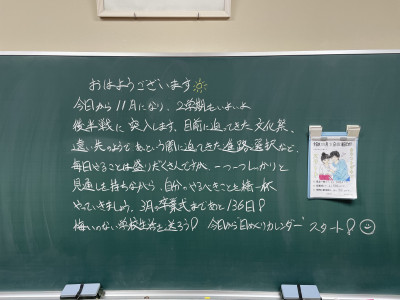 おはようございます
今日から11月になり、2学期もいよいよ
後半戦に突入します。目前に迫ってきた文化祭、
遠い先のようであという間に迫ってきた進路選択など、
毎日やることは盛りだくさんですが、一つ一つしっかりと
見通しを持ちながら、自分のやるべきことを精一杯
やっていきましょう。3月の卒業式まであと136日!
悔いのない学校生活を送ろう! 今日から日めくりカレンダースタート!